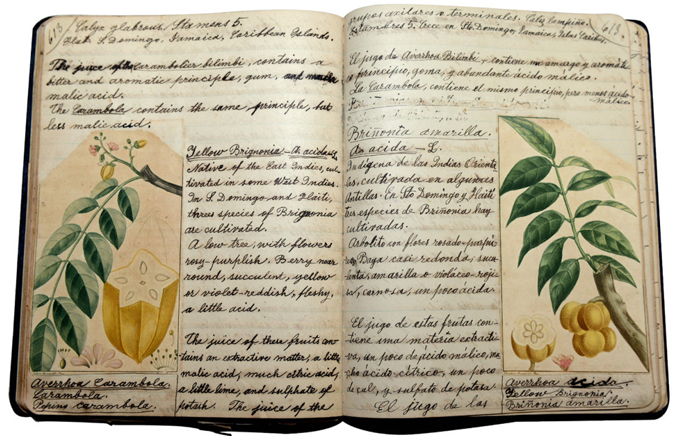 613
Calyx glabrous, Stamens 5.
Flak. S. Domingo, Jamaica, Caribbean Islands.
The juice of carambolier bilimbi, contains a
bitter and aromatic principle, gum, and
malic acid.
The Carambola contains the same principle, but
less malic acid.
Yellow Brignonia - A. acida - L.
Native of the East Indies, cul-
tivated in some West Indies.
In S. Domingo and Haiti,
three species of Brignonia
are cultivated.
A low tree, with flowers
rosy-purplish. Berry near
round, succulent, yellow
or violet-reddish, fleshy,
a little acid.
The juice of these fruits con-
tains an extractive matter, a little
malic acid, much citric acid,
a little lime, and sulphate of
potash. The juice of the
Averrhoa Carambola.
Carambola.
Pepino carambola.
grupos axilares o terminales. Caliz lampiño.
Estambres 5. Crece en Sto Domingo, Jamaica, Islas Caribes.
614.
El jugo de Averhoa Bilimbi, contiene un amargo y aromáti-
co principio, goma, y abundante ácido málico.
La Carambola, contiene el mismo principio, pero menos ácido
málico.
Briñonia amarilla.
An acida - L.
Indígena de las Indias Orienta
les, cultivada en algunas
Antillas. En Sto Domingo y Haití
tres especies de Briñonia hay
cultivadas.
Arbolito con flores rosado-purpúri-
as, Baga casi redonda, sucu-
lenta, amarilla o violáceo-roji-
za, carnosa, un poco ácida.
El jugo de estas frutas con-
tiene una materia extracti-
va, un poco de ácido málico, mu-
cho ácido cítrico, un poco
de cal, y sulfato de potasa.
El jugo de las
Averrhoa acida.
Yellow Brignonia.
Briñonia amarilla.